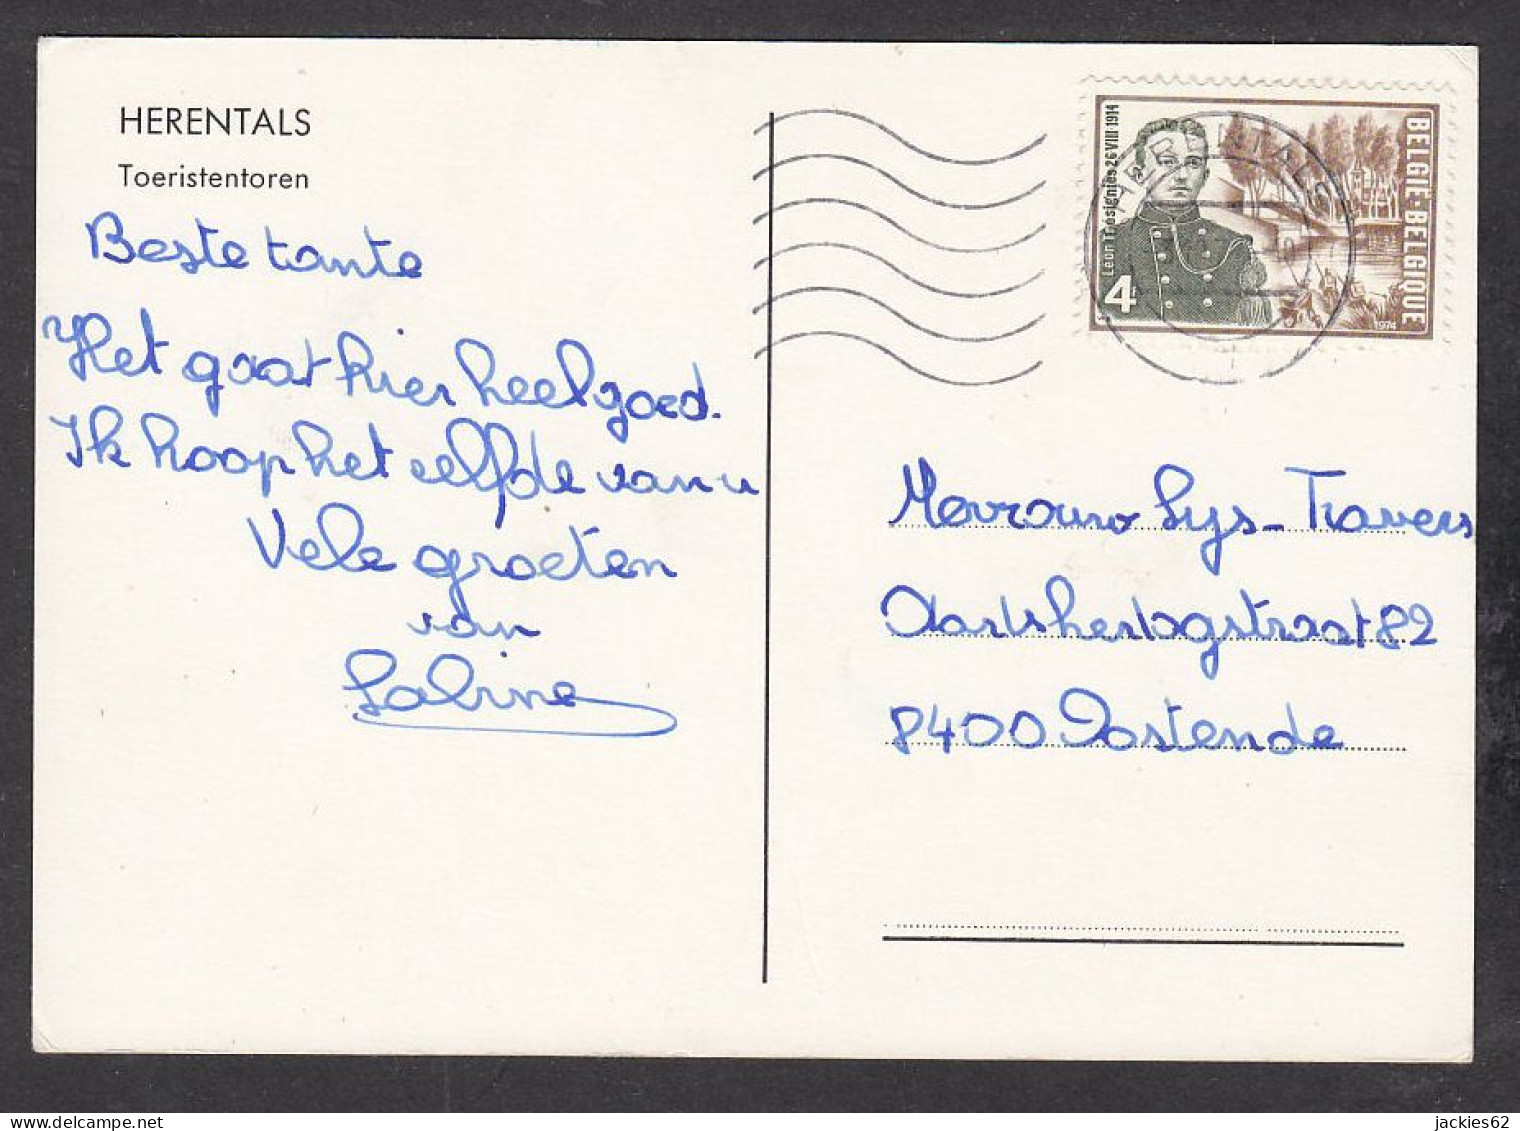 HERENTALS
Toeristentoren
Beste tante
Het gaat hier heel goed.
Ik hoop het eelfde van u
Vele groeten
van
Sabine
Léon Trésignies 26 VIII 1914
4
BELGIË-BELGIQUE
1974
HERENTALS
Mevrouw Lys-Travers
Aartshertogstraat 82
8400 Oostende
jackies62